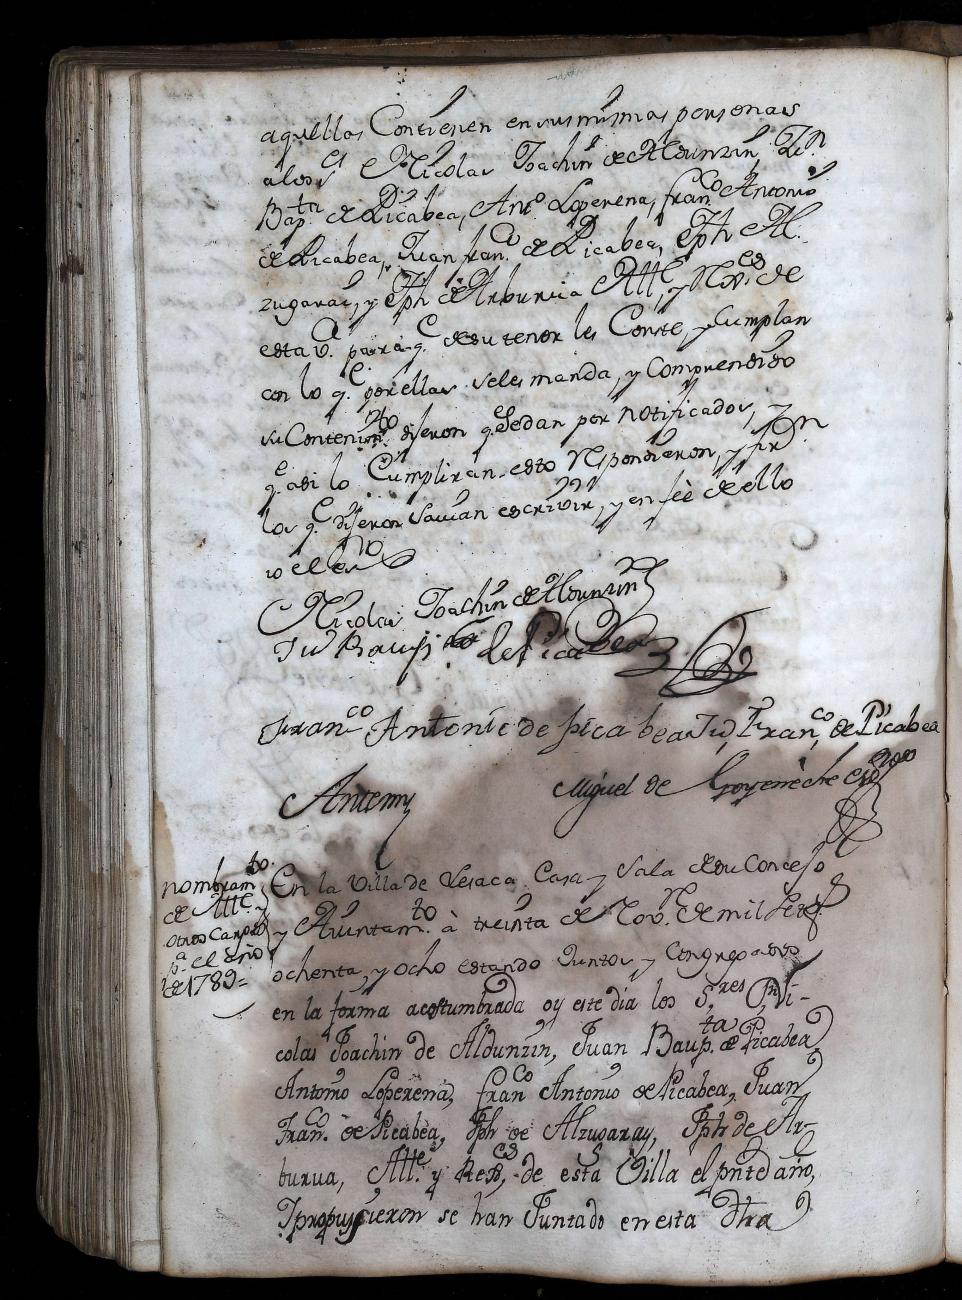 aquellas Contienen en sus mismas personas
a los S.es Nicolas Joachin de Aldunzin, Jn
Bap.ta de Picabea, Ant.o Loperena, Fran.co Antonio
de Picabea, Juan Fran.co de Picabea, Jph Al-
zugaray, y Jph de Arburua Alle. y Rexi.es de
esta V.a para q.e de su tenor les Conste, y Cumplan
con lo q.e por ellas se les manda, y Comprendido
su Contenim.to dijeron q.e se dan por notificados, y
q.e asi lo Cumpliran. esto respondieron, y fir.n
los q.e dijeron Savian escrivir, y en feè de ello
yo el es.no
Nicolas Joachin de Aldunzin
Jn Baup.ta de Picabea
Fran.co Antonio de picabea Jn Fran.co de Picabea
Antemy Miguel de Goyeneche es.no
nombram.to
de Alle. y
otros Cargos
p.a el año
de 1789=
En la Villa de Lesaca Casa y Sala de su Concejo
y Aiuntam.to à treinta de Nov.re de mil Set.s
ochenta, y ocho estando Juntos y Congregados
en la forma acostumbrada oy este dia los S.res Ni-
colas Joachin de Aldunzin, Juan Baup.ta de Picabea
Antonio Loperena, Fran.co Antonio de Picabea, Juan
Fran.co de Picabea, Jph de Alzugaray, Jph de Ar-
burua, Alle. y Rex.es de esta Villa el pnte año,
I propusieron se han Juntado en esta dha